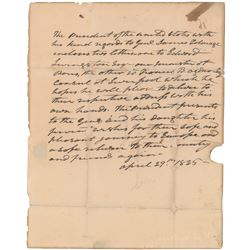 The President of the United States with
his kind regards to Genl James Talmage
encloses two letters one to Edward
Livingston Esqr our minister at
Paris, the other to Francis B
Consul at Liverpool which he
hopes he will please to deliver to
their respective address with his
own hands. The President presents
to the Genl and his daughter his
wishes for their safe and
pleasant journey to Europe and
a safe return to their country
and friends again.
April 29th 1835